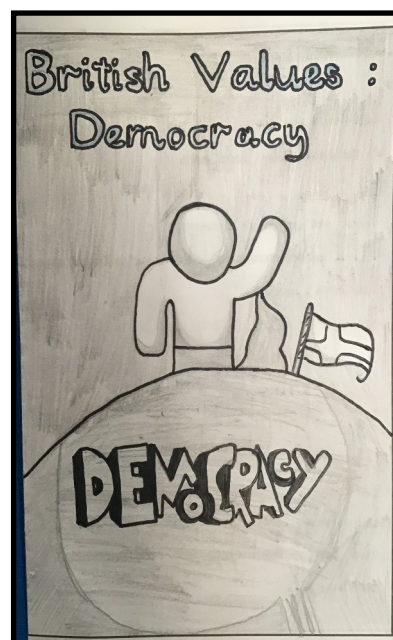 British Values :
Democracy
DEMOCRACY